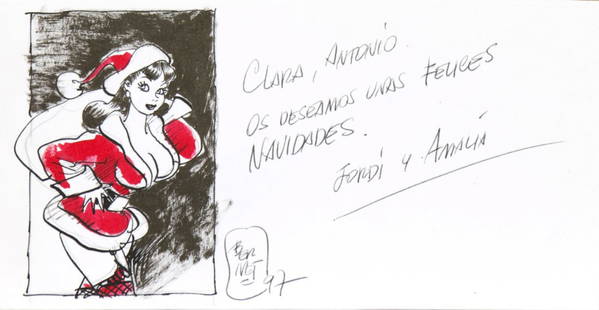 CLARA, ANTONIO.
OS DESEAMOS UNAS FELICES
NAVIDADES.
JORDI Y AMALIA
BER
NET
97